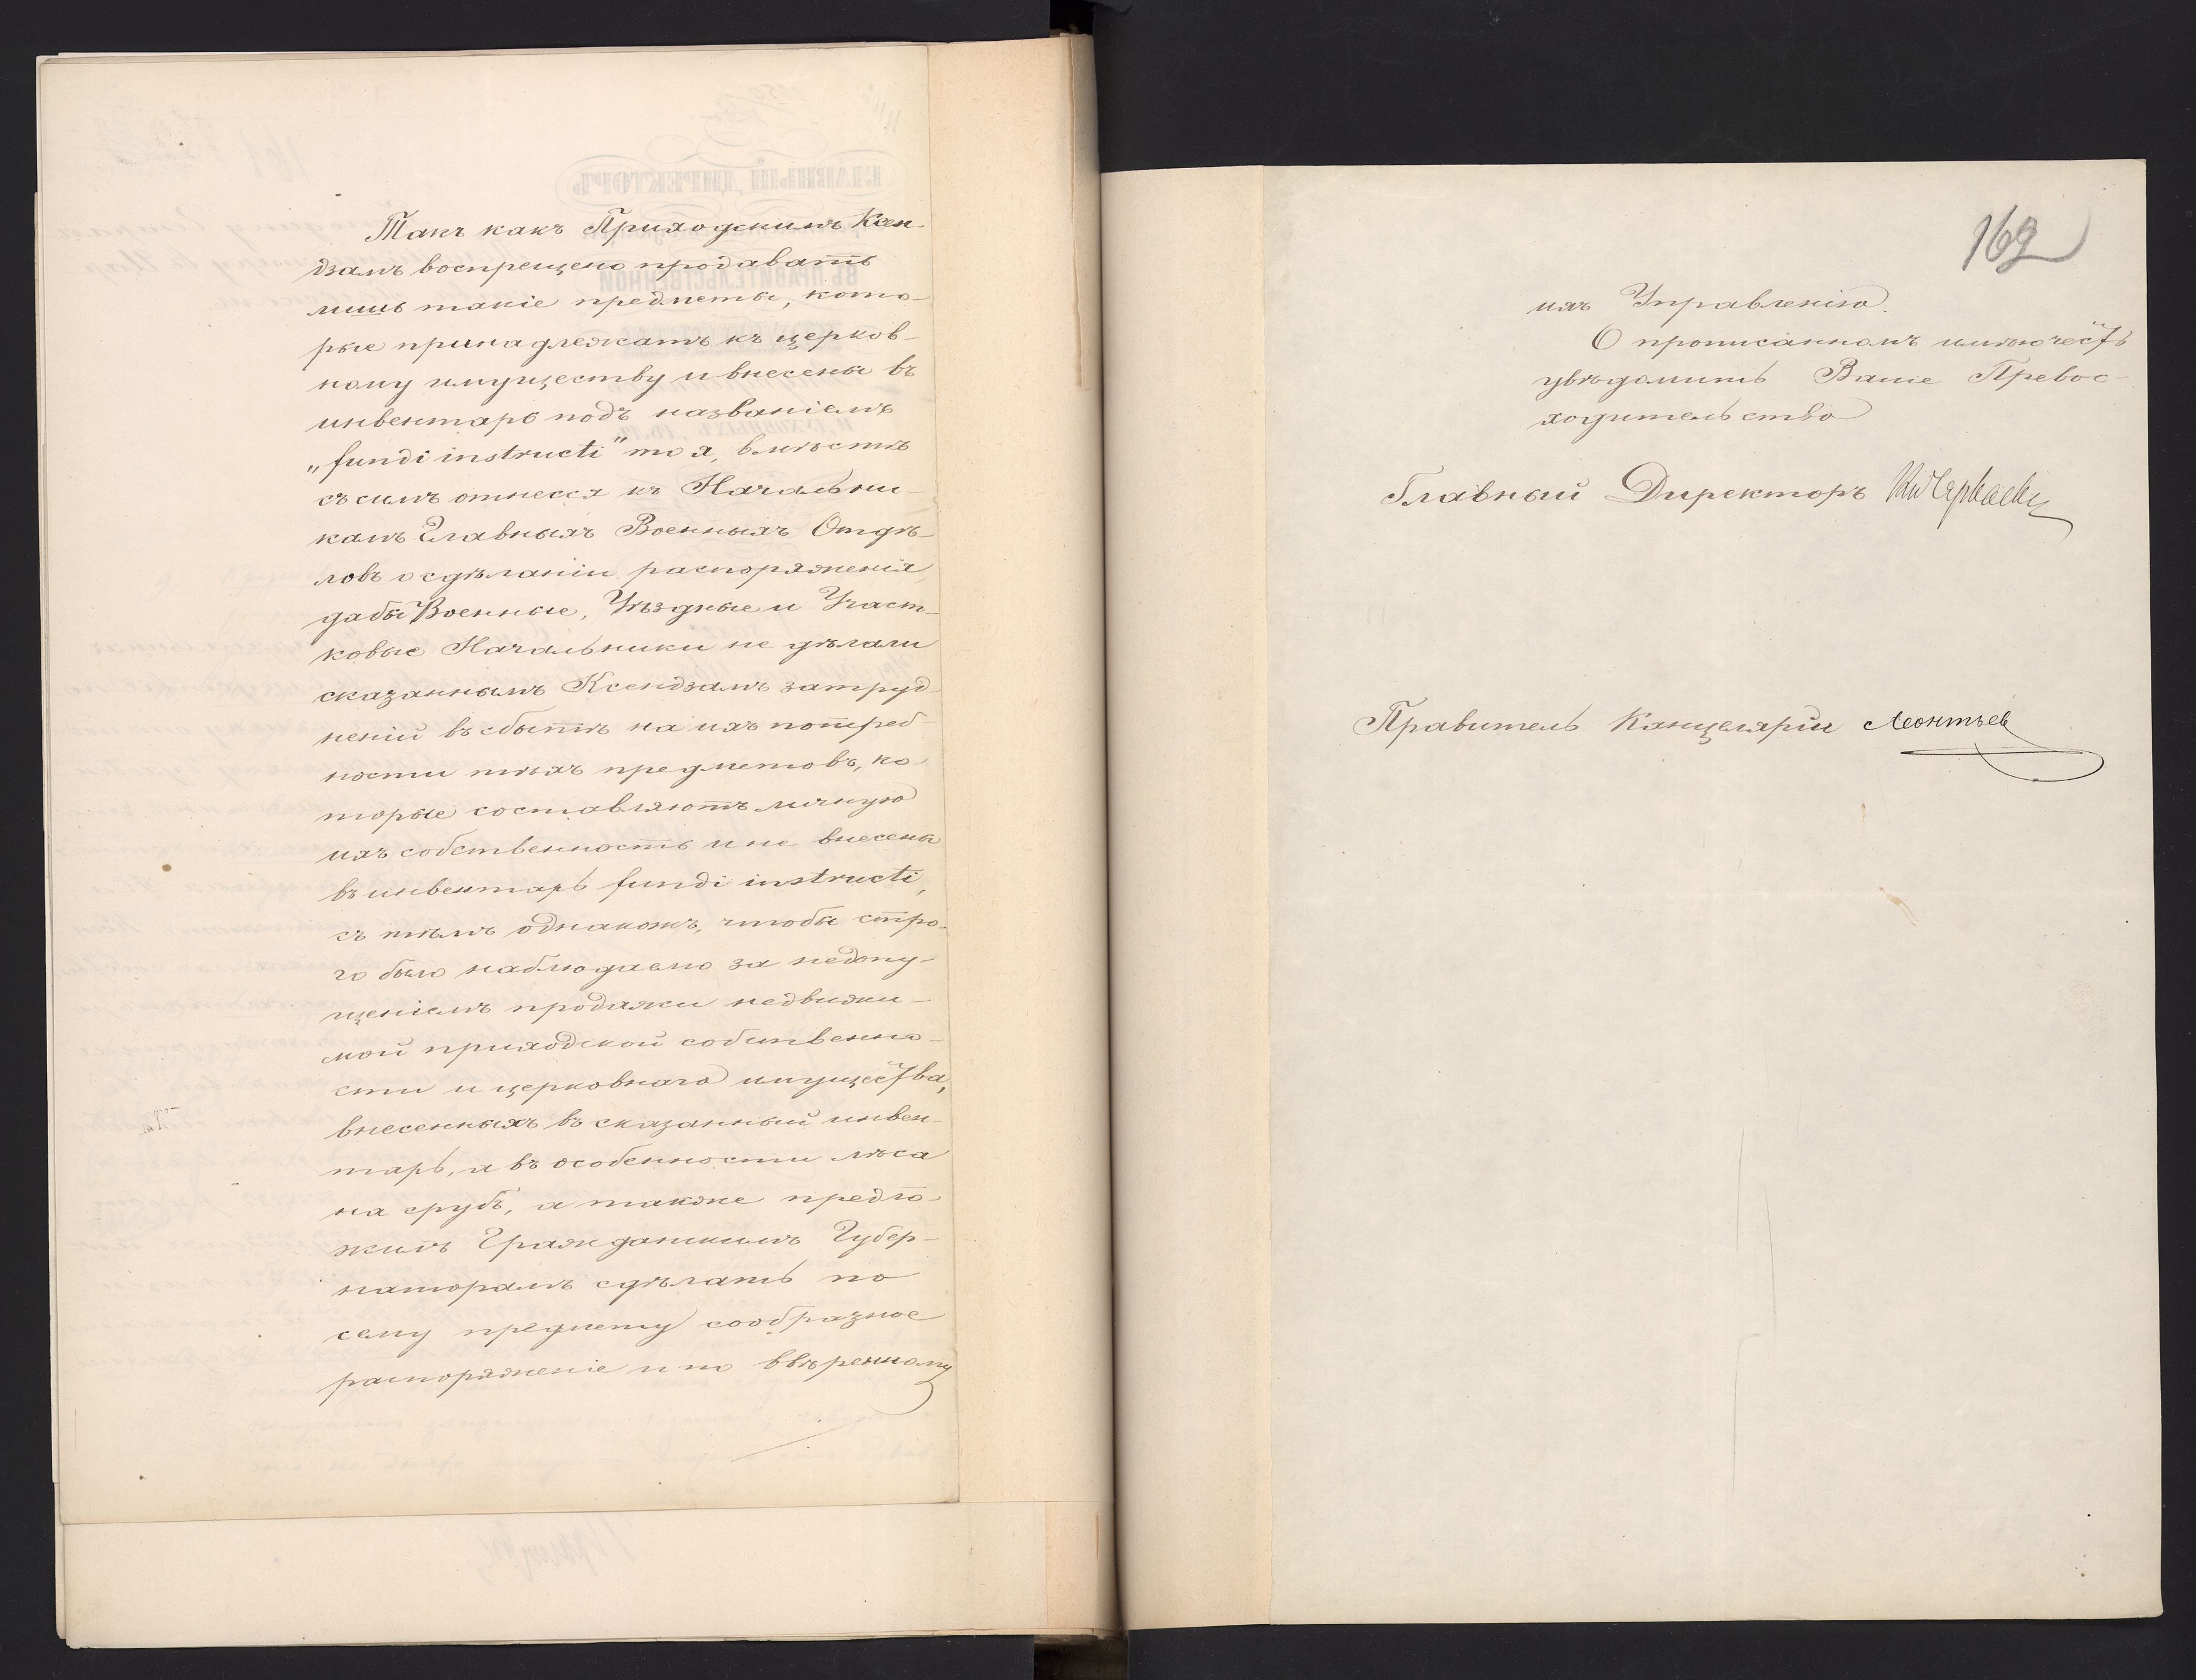 Такъ какъ Приходскимъ Ксен-
дзамъ воспрещено продавать
лишь такіе предметы, кото-
рые принадлежатъ къ церков-
ному имуществу и внесены въ
инвентарь подъ названіемъ
„fundi instructi" то я, вмѣстѣ
съ симъ отнесся къ Начальни-
камъ Главныхъ Военныхъ Отдѣ-
ловъ о сдѣланіи распоряженія
дабы Военные, Уѣздные и Участ-
ковые Начальники не дѣлали
сказаннымъ Ксендзамъ затруд-
неній въ сбытѣ на ихъ потреб-
ности тѣхъ предметовъ, ко-
торые составляютъ личную
ихъ собственность и не внесены
въ инвентарь fundi instructi,
съ тѣмъ однакожъ, чтобы стро-
го было наблюдаемо за недопу-
щеніемъ продажи недвижи-
мой приходской собственно-
сти и церковнаго имущества,
внесенныхъ въ сказанный инвен-
тарь, а въ особенности лѣса
на срубъ, а также предло-
жилъ Гражданскимъ Губер-
наторамъ сдѣлать по
сему предмету сообразное
распоряженіе и по ввѣренному
162
имъ Управленію.
О прописанномъ имѣю честь
увѣдомить Ваше Превос-
ходительство
Главный Директоръ
Правитель Канцеляріи Леонтьев